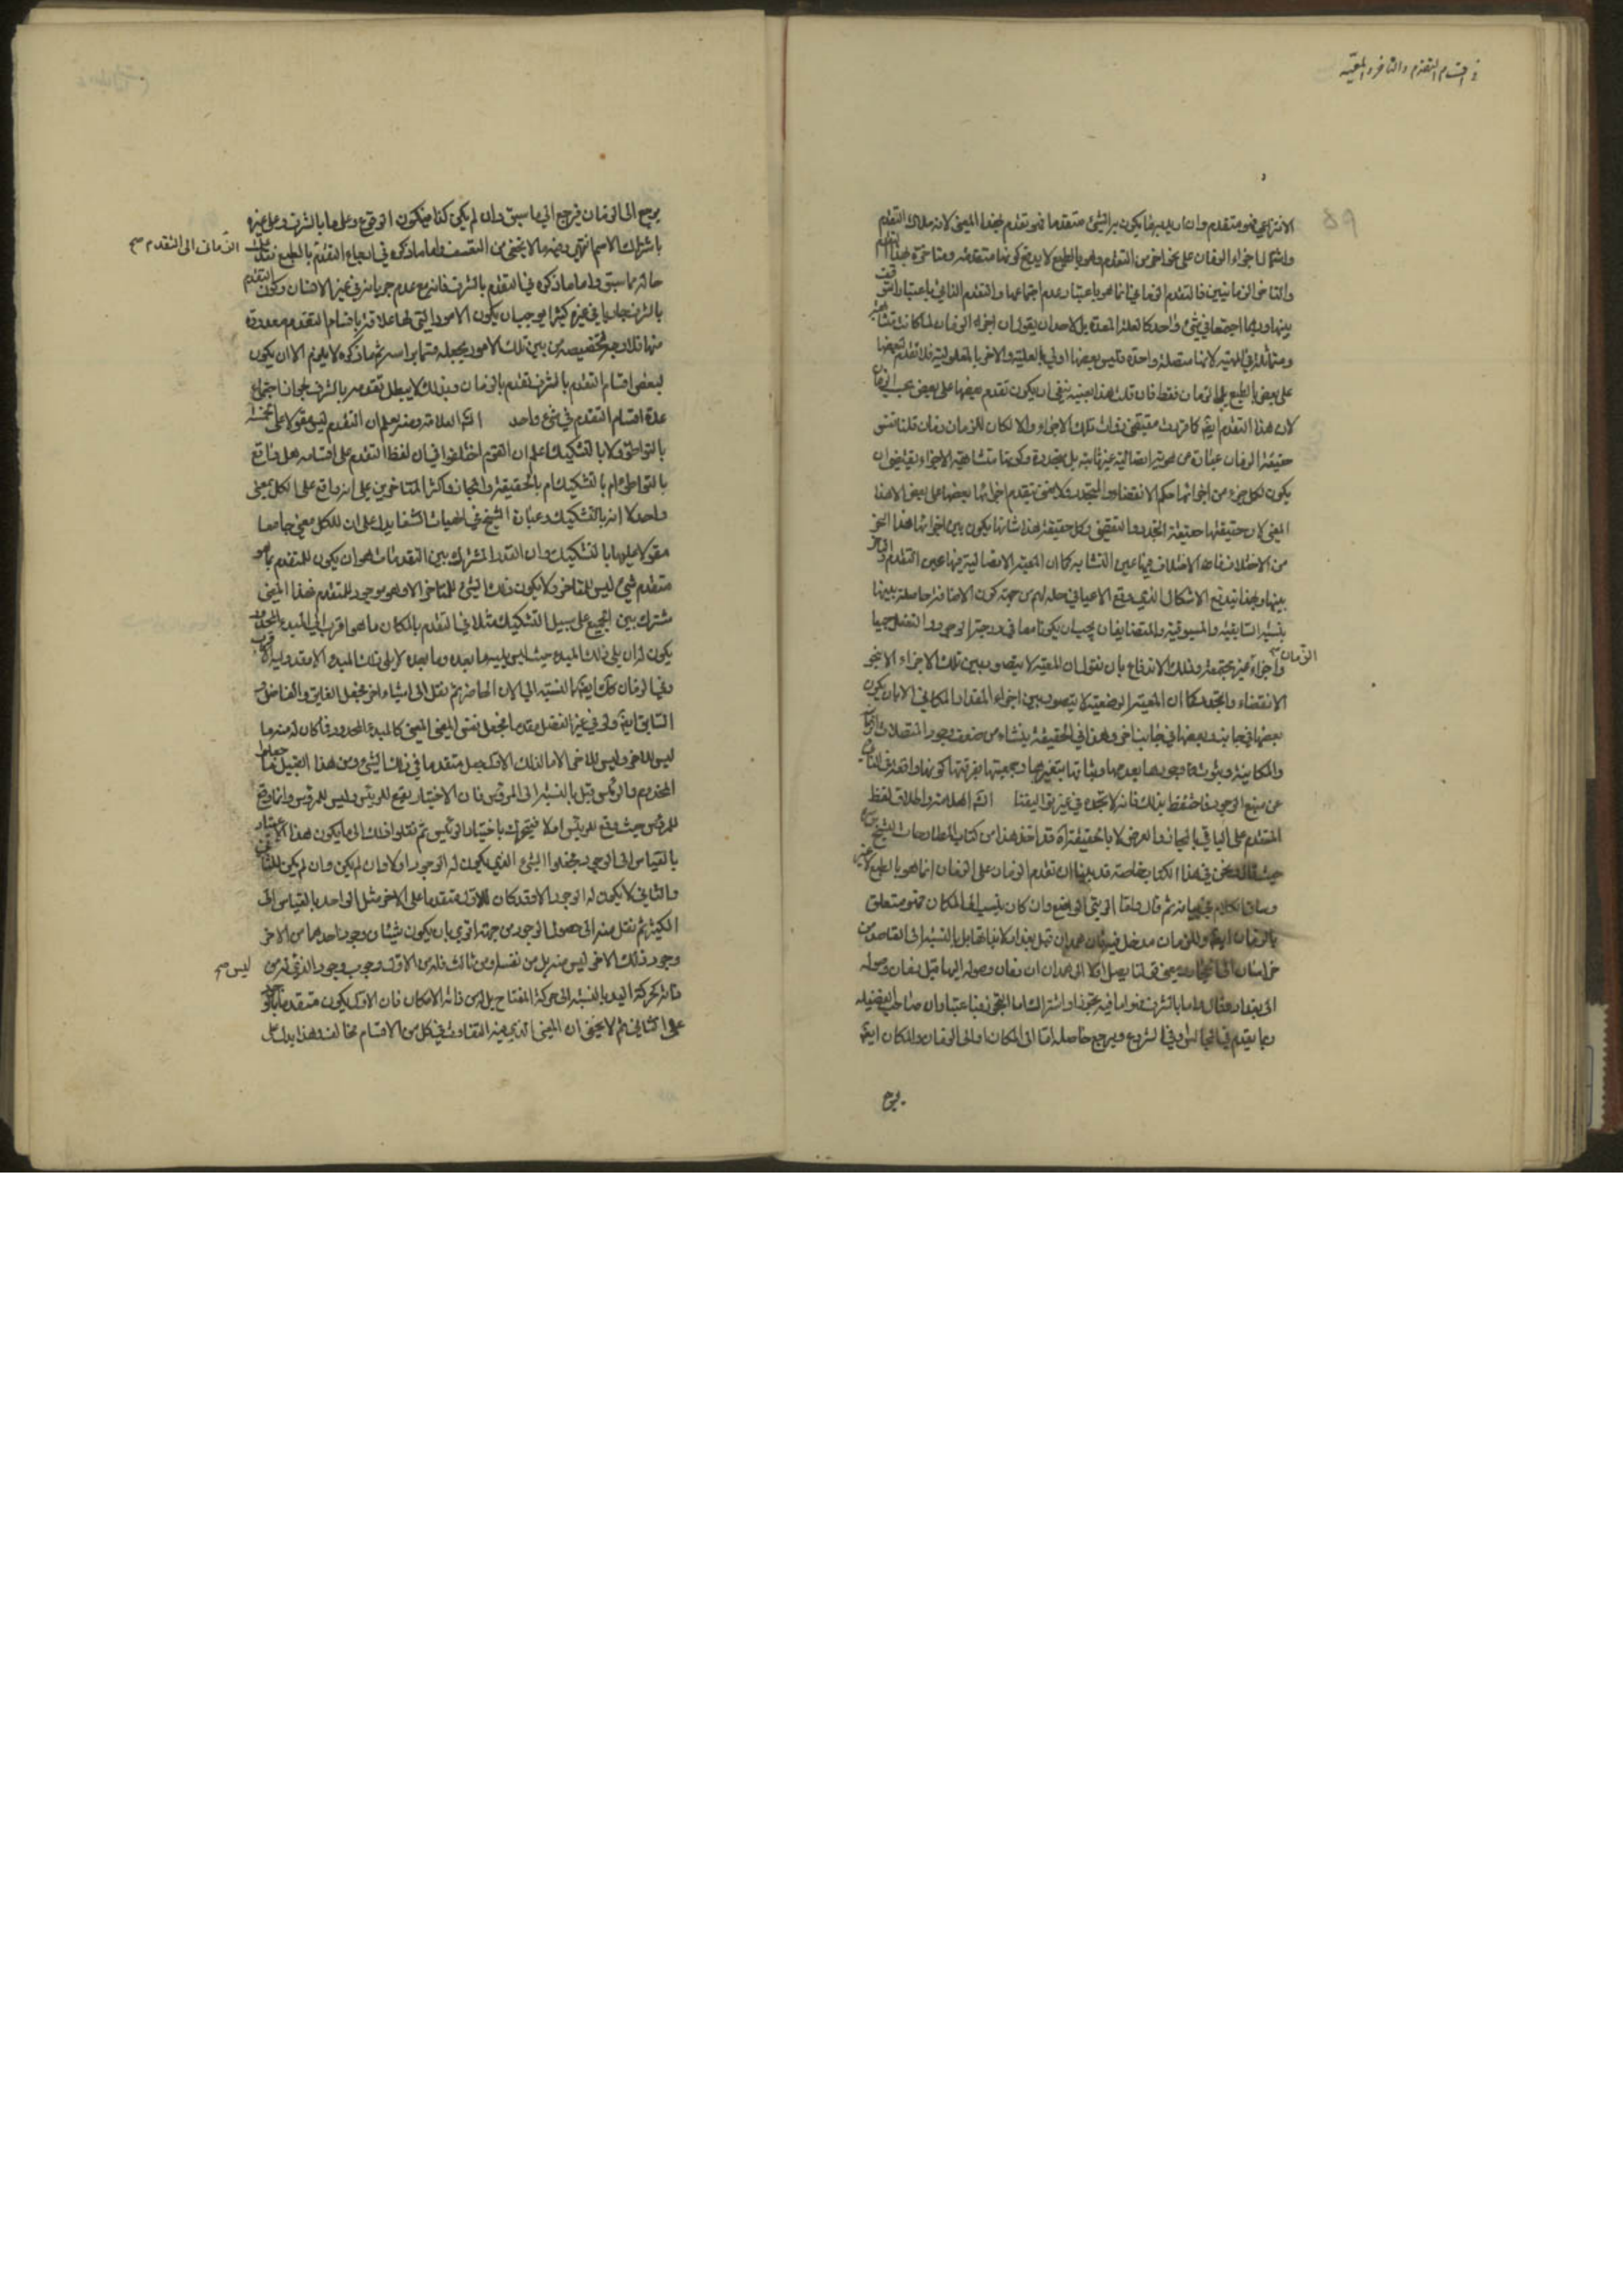 في اقسام التقدم والتاخر والمعية
89
الانتزاعي فهو متقدم وان اريد به ما يكون به الشيء متقدما فهو تقدم بهذا المعنى لانه ملاك التقدم
واشتمال اجزاء الزمان على نحو اخر من التقدم وهو بالطبع لا يدفع كونها متقدمة ومتاخرة بهذا التقدم
والتاخر الزمانيين فالتقدم الزماني انما هو باعتبار عدم اجتماعها والتقدم الذاتي باعتبار التوقف
بينها وربما اجتمعا في شيء واحد كالعلة المعدة بل لاحد ان يقول ان اجزاء الزمان لما كانت متشابهة
ومتماثلة في المهية لانها متصلة واحدة فليس بعضها اولى بالعلية والاخر بالمعلولية فلا تقدم لبعضها
على بعض بالطبع بل بالزمان فقط فان قلت هذا بعينه ينفي ان يكون تقدم بعضها على بعض بحسب الزمان
لان هذا التقدم ايضا كما قررت مقتضى ذات تلك الاجزاء والا لكان للزمان زمان قلنا نفس
حقيقة الزمان عبارة عن هوية اتصالية غير ثابتة بل متجددة وكونها متشابهة الاجزاء يقتضي ان
يكون لكل جزء من اجزائها حكم الانقضاء والتجدد ولا نعني بتقدم اجزائها بعضها على بعض الا هذا
المعنى لان حقيقتها حقيقة التجدد والتقضي وكل حقيقة هذا شانها يكون بين اجزائها هذا النحو
من الاختلاف فما به الاختلاف فيها عين التشابه كما ان المعية الاتصالية فيها عين التقدم والتاخر
بينها وبهذا يندفع الاشكال الذي وقع الاعياء في حله لهم من جهة كون الاضافة حاصلة بينها
بنسبة السابقية والمسبوقية والمتضايفان يجب ان يكونا معا في درجة الوجود والتعقل جميعا
الزمان صح
واجزاءه غير مجتمعة وذلك الاندفاع بان نقول ان المعية لا يتصور بين تلك الاجزاء الا بنحو
الانقضاء والتجدد كما ان المعية الوضعية لا يتصور بين اجزاء المقدار المكاني الا بان يكون
بعضها في جانب وبعضها في جانب اخر وهذا في الحقيقة ينشاء من ضعف وجود المتصلات الزمانية
والمكانية وثبوتها وجودها بعدمها وثباتها بتغيرها وجمعيتها بفرقتها
عن منبع الوجود فاحتفظ بذلك فانه لا تجده في غير
المتقدم على الباقي بالمجاز والعرض لا بالحقيقة اه قد اخذ هذا من كتاب المطارحات للشيخ
حيث قال فنحن في هذا الكتاب خاصة قد بينا ان تقدم الزمان على الزمان انما هو بالطبع لا غير
وساق الكلام في بيانه ثم قال واما الرتبي الوضعي وان كان ينسب الى المكان فهو متعلق
بالزمان ايضا وللزمان مدخل فيه فان همدان قبل بغداد لا بذاتها بل بالنسبة الى القاصد من
خراسان الى الحجاز بمعنى انما يصل اولا الى همدان ان زمان وصوله اليها قبل زمان وصوله
الى بغداد وقال واما ما بالشرف فهو اما فيه تجوز او اشتراك اما التجوز فباعتبار ان صاحب الفضيلة
ربما يقدم في المجالس او في الشروع ويرجع حاصله اما الى المكان او الى الزمان والمكان ايضا
يرجع
يرجع الى الزمان فيرجع الى ما سبق وان لم يكن كذا فيكون الوقوع على ما بالشرف وعلى غيره
باشتراك الاسم انتهى وفيه ما لا يخفى من التعسف فاما ما ذكره في ارجاع التقدم بالطبع فقد علمت
الزماني الى التقدم صح
حاله مما سبق واما ما ذكره في التقدم بالشرف فانه مع عدم جريانه في غير الانسان وكون التقدم
بالشرف جاريا في غيره كثيرا يوجب ان يكون الامور التي لها علاقة باقسام التقدم معدودة
منها فلا وجه لتخصيصه من بين تلك الامور بجعله قسما براسه ثم ما ذكره لا يلزم الا ان يكون
لبعض اقسام التقدم بالشرف تقدم بالزمان وبذلك لا يبطل تقدمه بالشرف لجواز اجتماع
عدة اقسام التقدم في نوع واحد
بالتواطؤ ولا بالتشكيك اعلم ان القوم اختلفوا في ان لفظ التقدم على اقسامه هل واقع
بالتواطؤ ام بالتشكيك ام بالحقيقة والمجاز واكثر المتاخرين على انه واقع على الكل بمعنى
واحد لا انه بالتشكيك وعبارة الشيخ في الهيات الشفا يدل على ان للكل معنى جامعا
مقولا عليها بالتشكيك وان القدر المشترك بين التقدمات هو ان يكون للمتقدم بما هو
متقدم شيء ليس للمتاخر ولا يكون ذلك الشيء للمتاخر الا وهو موجود للمتقدم فهذا المعنى
مشترك بين الجميع على سبيل التشكيك مثلا في التقدم بالمكان ما هو اقرب الى المبدء المحدود
يكون له ان يلي ذلك المبدء حيث ليس يليه ما بعده وما بعده لا يلي ذلك المبدء الا وقد وليه الاقرب
وفي الزمان كذلك ايضا بالنسبة الى الان الحاضر ثم نقل الى اشياء اخر فجعل الفايق والفاضل
السابق ايضا ولو في غير الفضل مقدما فجعل نفس المعنى كالمبدء المحدود فما كان له منه ما
ليس للاخر وليس للاخر الا ما لذلك الاول جعل متقدما في ذلك الشيء ومن هذا القبيل ما جعلوا
المخدوم والرئيس قبل بالنسبة الى المرؤس فان الاختيار يقع للرئيس وليس للمرؤس وانما وقع
للمرؤس حيث وقع للرئيس اولا فيتحرك باختيار الرئيس ثم نقلوا ذلك الى ما يكون هذا الاعتبار
بالقياس الى الوجود فجعلوا الشيء الذي يكون له الوجود اولا وان لم يكن للثاني
والثاني لا يكون له الوجود الا وقد كان للاول متقدما على الاخر مثل الواحد بالقياس الى
الكثير ثم نقل منه الى حصول الوجود من جهة اخرى بان يكون شيئان وجود احدهما من الاخر
وجود ذلك الاخر ليس منه بل من نفسه او من ثالث فله من الاول وجوب وجود الذي له من
ليس صح
ذاته كحركة اليد بالنسبة الى حركة المفتاح بل له من ذاته الامكان فان الاول يكون متقدما بالوجود
على الثاني ثم لا يخفى ان المعنى الذي فيه التفاوت في كل من الاقسام مخالف وهذا يدل على